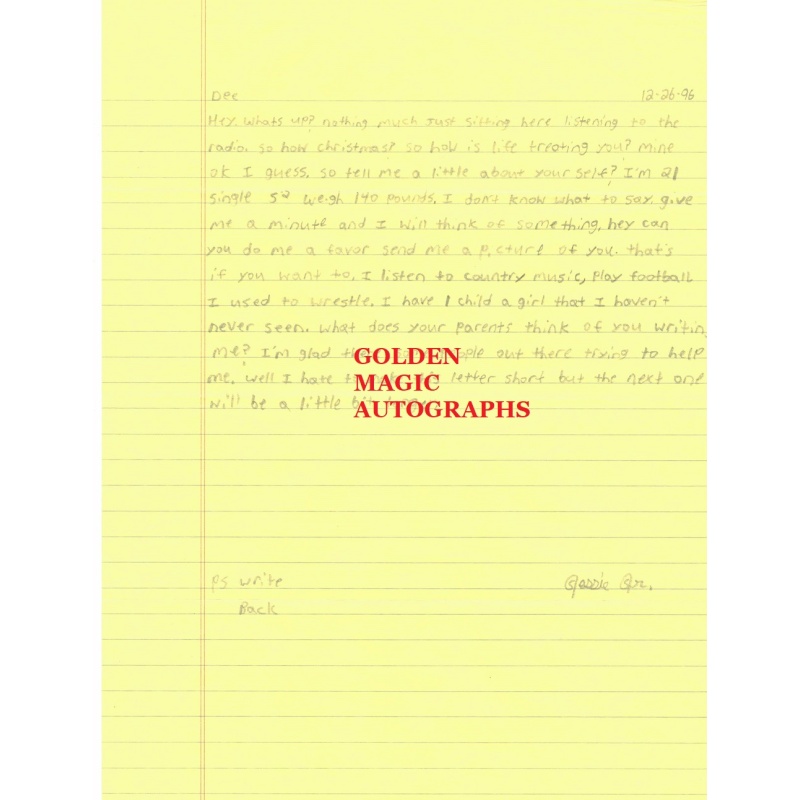 Dee 12-26-96
Hey. Whats up? nothing much Just sitting here listening to the
radio. so how christmas? so how is life treating you? mine
ok I guess. so tell me a little above your self? I'm 21
single 5² weigh 140 pounds. I don't know what to say. give
me a minute and I will think of something. hey can
you do me a favor send me a picture of you. that's
if you want to. I listen to country music, Play football
I used to wrestle. I have 1 child a girl that I haven't
never seen. what does your parents think of you writin
me? I'm glad people out there trying to help
me. well I hate letter short but the next one
will be a little bit
GOLDEN
MAGIC
AUTOGRAPHS
PS write Jessie Jr.
Back